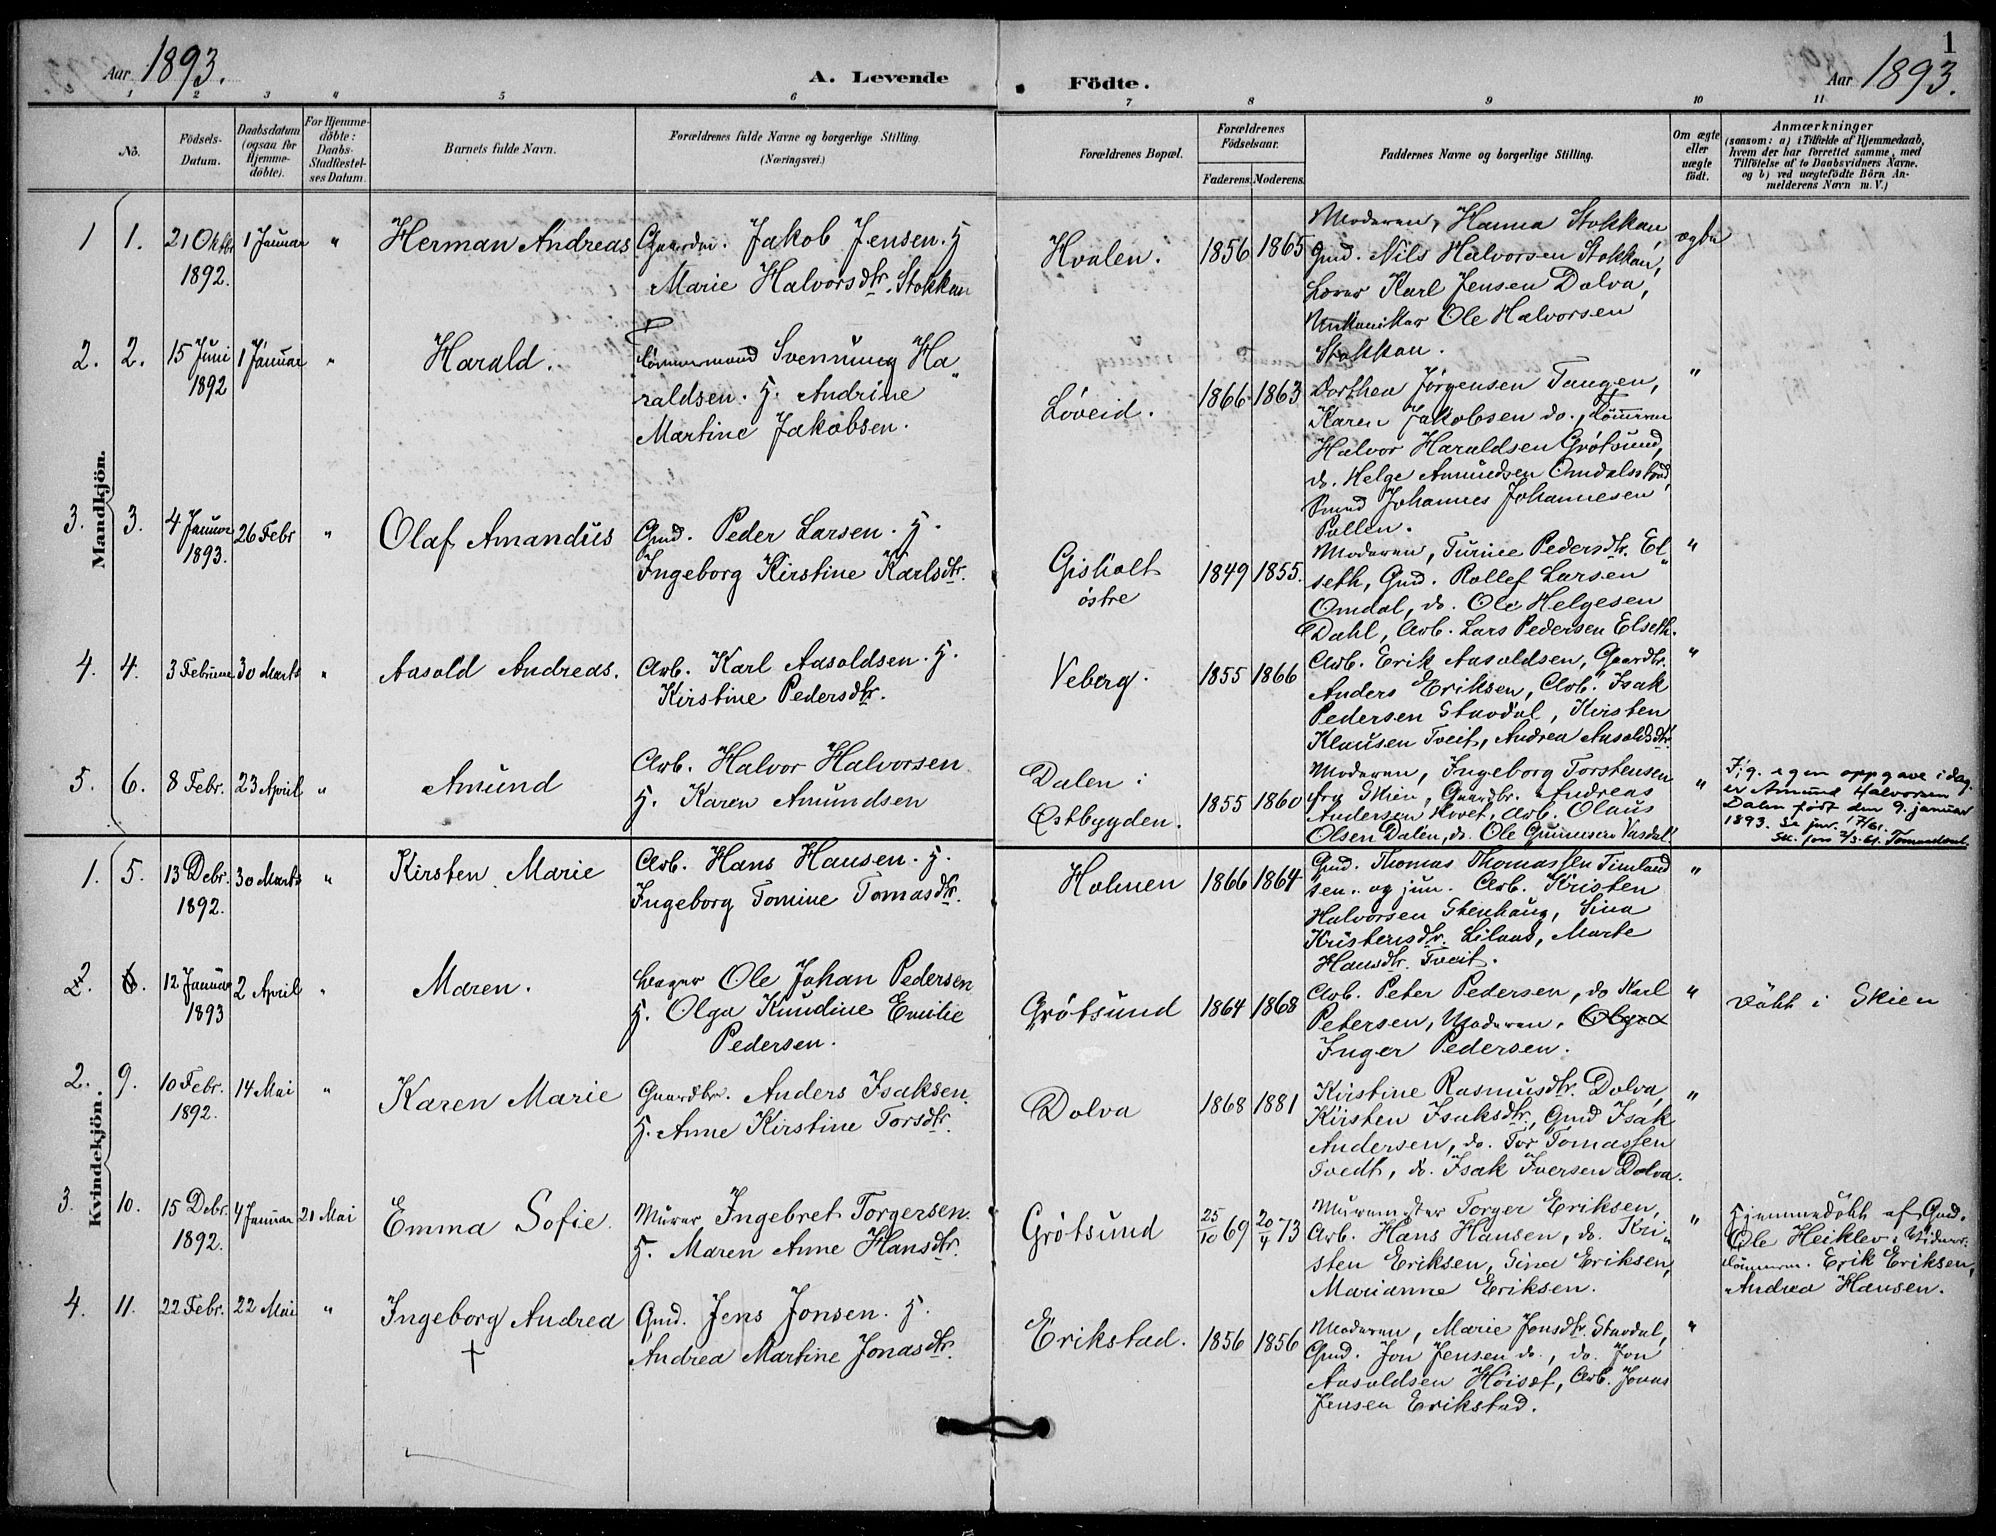 1
Aar 1893.
A. Levende
Födte.
Aar 1893.
1 2 3 4 5 6 7 8 9 10 11
No.
Födsels-
Datum.
Daabsdatum
(ogsaa for
Hjemme-
döbte).
For Hjemme-
döbte:
Daabs-
Stadfæstel-
ses Datum.
Barnets fulde Navn.
Forældrenes fulde Navne og borgerlige Stilling.
(Næringsvei.)
Forældrenes Bopæl.
Forældrenes
Födselsaar.
Faderens. Moderens.
Faddernes Navne og borgerlige Stilling.
Om ægte
eller
uægte
födt.
Anmærkninger
(saasom: a) i Tilfælde af Hjemmedaab,
hvem der har forrettet samme, med
Tilföielse af to Daabsvidners Navne.
og b) ved uægtefödte Börn An-
melderens Navn m. V.)
Mandkjön.
1 1.
21 Oktbr
1892.
1 Januar
"
Herman Andreas
Gaardbr. Jakob Jensen. H
Marie Halvorsdtr. Stokkan
Hvalen.
1856 1865
Moderen, Hanna Stokkan,
Gmd. Nils Halvorsen Stokkan,
Lærer Karl Jensen Dolva,
Ole Halvorsen
Stokkan.
ægte
2. 2.
15 Juni
1892
1 Januar
"
Harald.
Tömmermand Svennung Ha-
raldsen. H. Andrine
Martine Jakobsen.
Löveid.
1866 1863
Dorthea Jörgensen Tangen,
Karen Jakobsen do., Tömmerm
Halvor Haraldsen Grötsund,
do. Helge Amundsen Omdalsstrand,
Johannes Johannesen
Pollen.
"
3. 3.
4 Januar
1893.
26 Febr
"
Olaf Amandus
Gmd. Peder Larsen. H.
Ingeborg Kirstine Karlsdtr.
Gisholt
östre
1849 1855.
Moderen, Turine Pedersdtr. El-
seth, Gmd. Rollef Larsen
Omdal, do. Ole Helgesen
Dahl, Arb. Lars Pedersen Elseth.
"
4. 4.
3 Februar
30 Marts
"
Aasold Andreas.
Arb. Karl Aasoldsen. H.
Kirstine Pedersdtr.
Veberg.
1855 1866
Arb. Erik Aasoldsen, Gaardbr.
Anders Eriksen, Arb. Isak
Pedersen Stavdal, Kirsten
Klausen Tveit, Andrea Aasoldsdtr.
"
5. 6.
8 Febr.
23 April
"
Amund
Arb. Halvor Halvorsen
H. Karen Amundsen
Dalen i
Östbygden.
1855 1860
Moderen, Ingeborg Torstensen
fra Skien, Gaardbr. Andreas
Andersen Hovet, Arb. Olaus
Olsen Dalen, do. Ole Gunnusen Vasdal.
"
Fig. egen oppgave i dag
er Amund Halvorsen
Dalen født den 9. januar
1893. Se jnr. 17/61.
Sk. fors 2/3-61.
Kvindekjön.
1. 5.
13 Debr.
1892.
30 Marts
"
Kirsten Marie
Arb. Hans Hansen. H.
Ingeborg Tomine Tomasdtr.
Holmen
1866 1864
Gmd. Thomas Thomassen Timland
sen. og jun. Arb. Kristen
Halvorsen Stenhaug, Sina
Kristensdtr. Lilaas, Marte
Hansdtr. Tveit.
"
2. 6.
12 Januar
1893
2 April
"
Maren.
Ole Johan Pedersen
H. Olga Knudine Emilie
Pedersen.
Grötsund
1864 1868
Arb. Peter Pedersen, do Karl
Petersen, Moderen, Olga
Inger Pedersen.
"
Döbt i Skien
2. 9.
10 Febr.
1892.
14 Mai
"
Karen Marie
Gaardbr. Anders Isaksen
H. Anne Kirstine Torsdtr.
Dolva
1868 1881
Kirstine Rasmusdtr. Dolva,
Kirsten Isaksdtr., Gmd Isak
Andersen, do. Tor Tomassen
Tvedt, do. Isak Iversen Dolva.
"
3. 10.
15 Debr.
1892.
4 Januar
21 Mai
Emma Sofie.
Murer Ingebret Torgersen.
H. Maren Anne Hansdtr.
Grötsund
25/10 69 20/4 73
Murmester Torger Eriksen,
Arb. Hans Hansen, do. Kri-
sten Eriksen, Gina Eriksen,
Marianne Eriksen.
"
Hjemmedöbt af Gmd.
Ole Heiklev. Vidner:
Tömmerm. Erik Eriksen,
Andrea Hansen.
4. 11.
22 Febr.
22 Mai
"
Ingeborg Andrea
†
Gmd. Jens Jonsen. H.
Andrea Martine Jonasdtr.
Erikstad.
1856 1856
Moderen, Marie Jonsdtr. Stavdal,
Gmd. Jon Jensen do., do. Jon
Aasoldsen Höiset, Arb. Jonas
Jensen Erikstad.
"